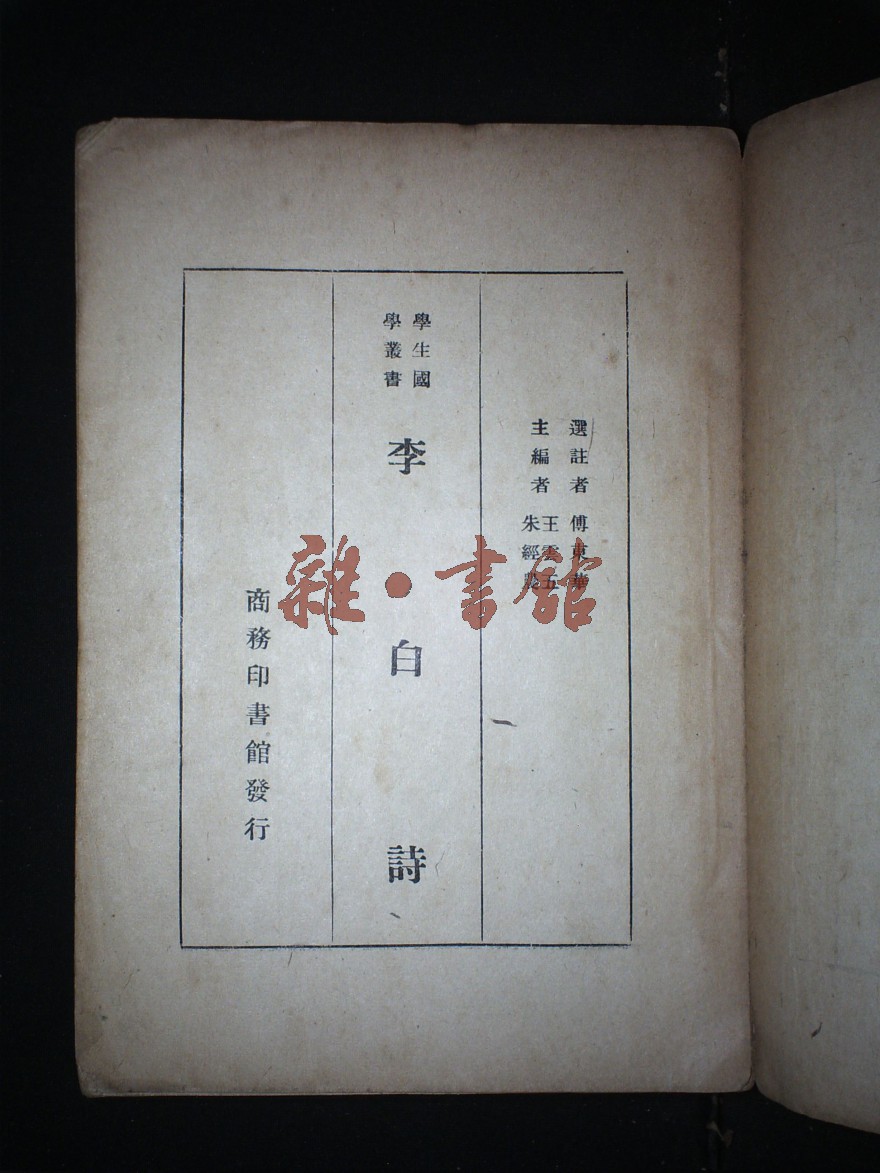 選註者 傅東華
主編者 王雲五
朱經
學生國
學叢書
李白詩
商務印書館發行
雜·書館